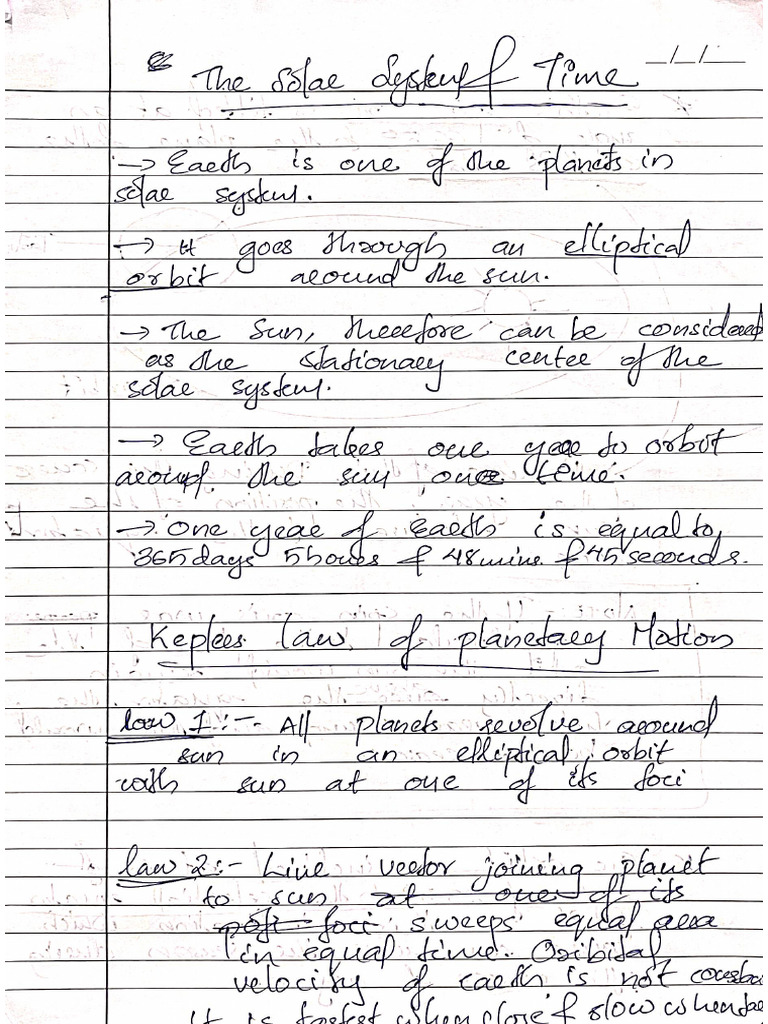 The Solar System & Time
_/_/_
→ Earth is one of the planets in
solar system.
→ It goes through an elliptical
orbit around the sun.
→ The Sun, therefore can be considered
as the stationary center of the
solar system.
→ Earth takes one year to orbit
around the sun one time.
→ One year of Earth is equal to
365 days 5 hours & 48 mins. & 45 seconds.
Keplers law of planetary Motion
law 1:- All planets revolve around
sun in an elliptical orbit
with sun at one of its foci
law 2:- Line vector joining planet
to sun at one of its
foci sweeps equal area
in equal time. Oribital
velocity of earth is not constant
It is fastest when close & slow when far